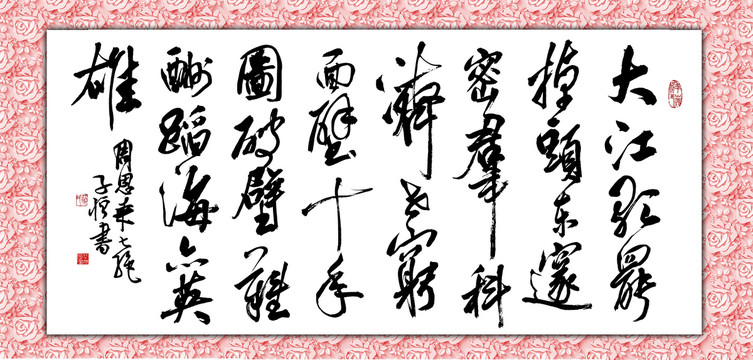 大江歌罷
掉頭東邃
密羣科
濟世窮
面壁十年
圖破壁難
酬蹈海亦英
雄
周恩来七絕
子書